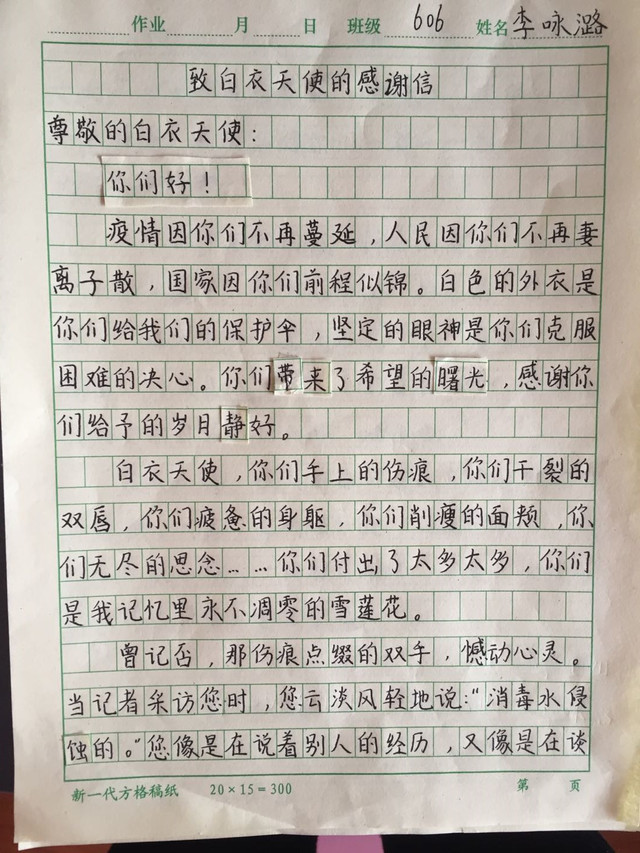 作业 月 日 班级 606 姓名 李咏潞
致白衣天使的感谢信
尊敬的白衣天使：
你们好！
疫情因你们不再蔓延，人民因你们不再妻
离子散，国家因你们前程似锦。白色的外衣是
你们给我们的保护伞，坚定的眼神是你们克服
困难的决心。你们带来了希望的曙光，感谢你
们给予的岁月静好。
白衣天使，你们手上的伤痕，你们干裂的
双唇，你们疲惫的身躯，你们削瘦的面颊，你
们无尽的思念……你们付出了太多太多，你们
是我记忆里永不凋零的雪莲花。
曾记否，那伤痕点缀的双手，憾动心灵。
当记者采访您时，您云淡风轻地说：“消毒水侵
蚀的。”您像是在说着别人的经历，又像是在谈
新一代方格稿纸 20×15=300 第 页